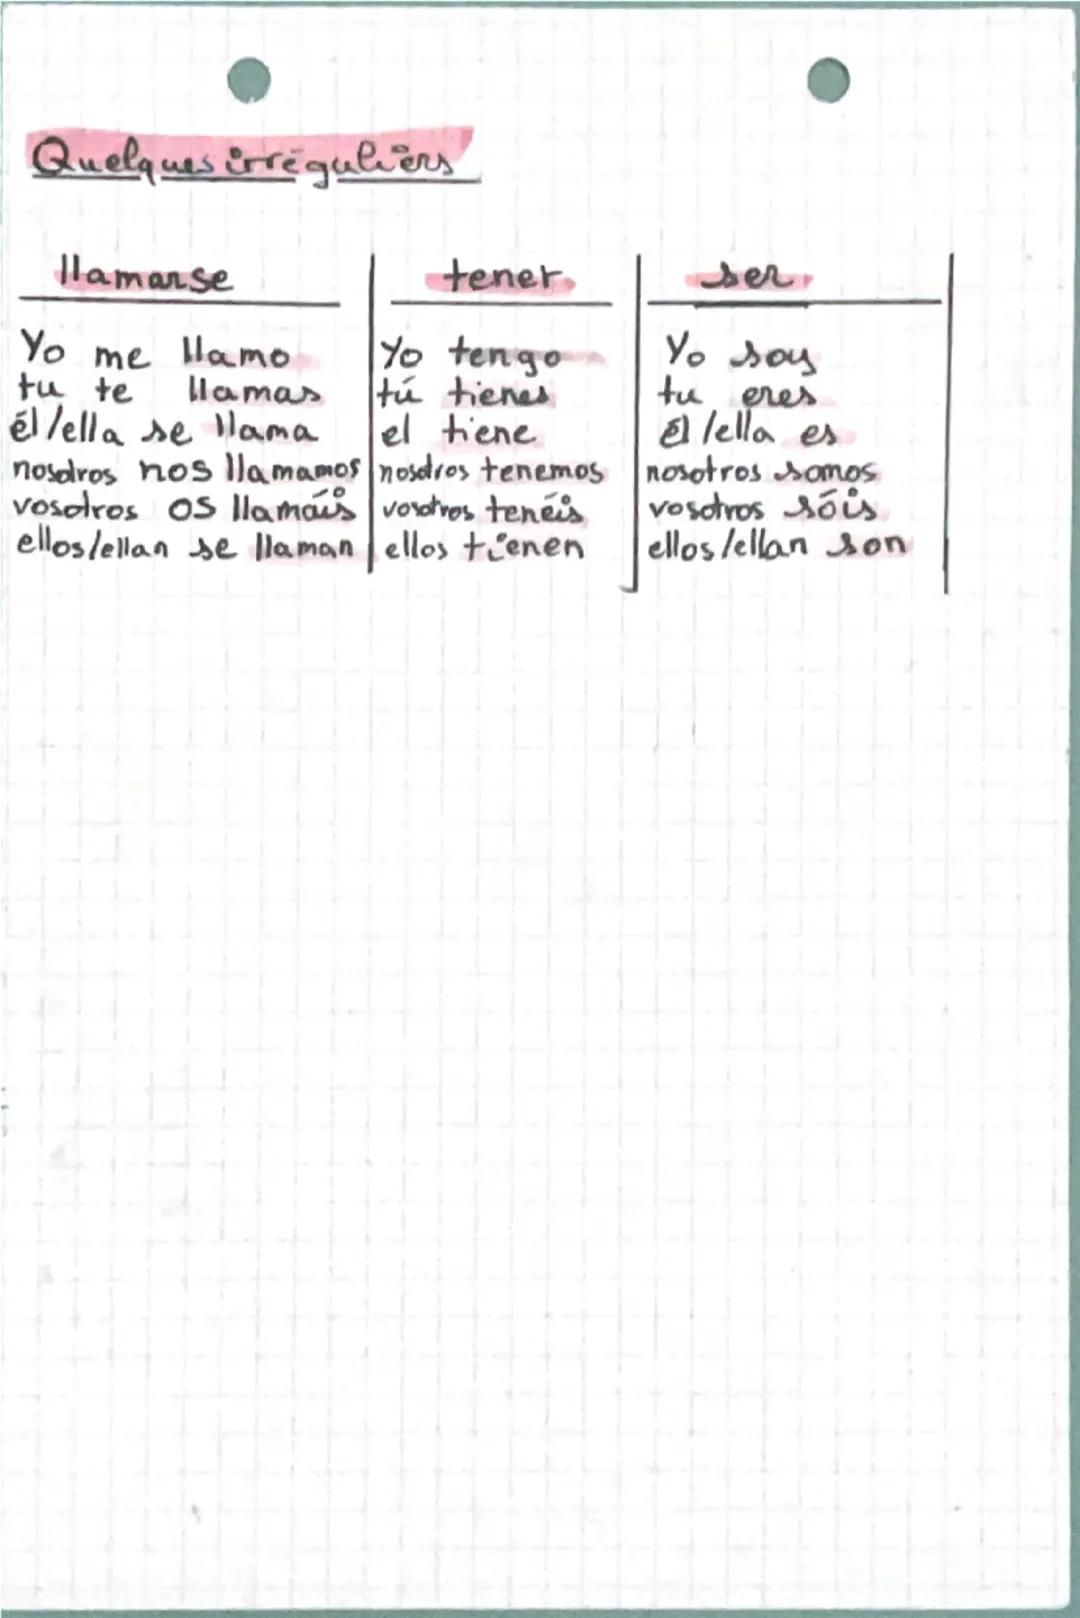 Quelques irréguliers
llamarse
Yo me llamo
tu te llamas
él/ella se llama
nosotros nos llamamos
vosotros os llamáis
ellos/ellan se llaman
tener
Yo tengo
tú tienes
el tiene
nosotros tenemos
vosotros tenéis
ellos tienen
ser
Yo soy
tu eres
él/ella es
nosotros somos
vosotros sóis
ellos/ellan son